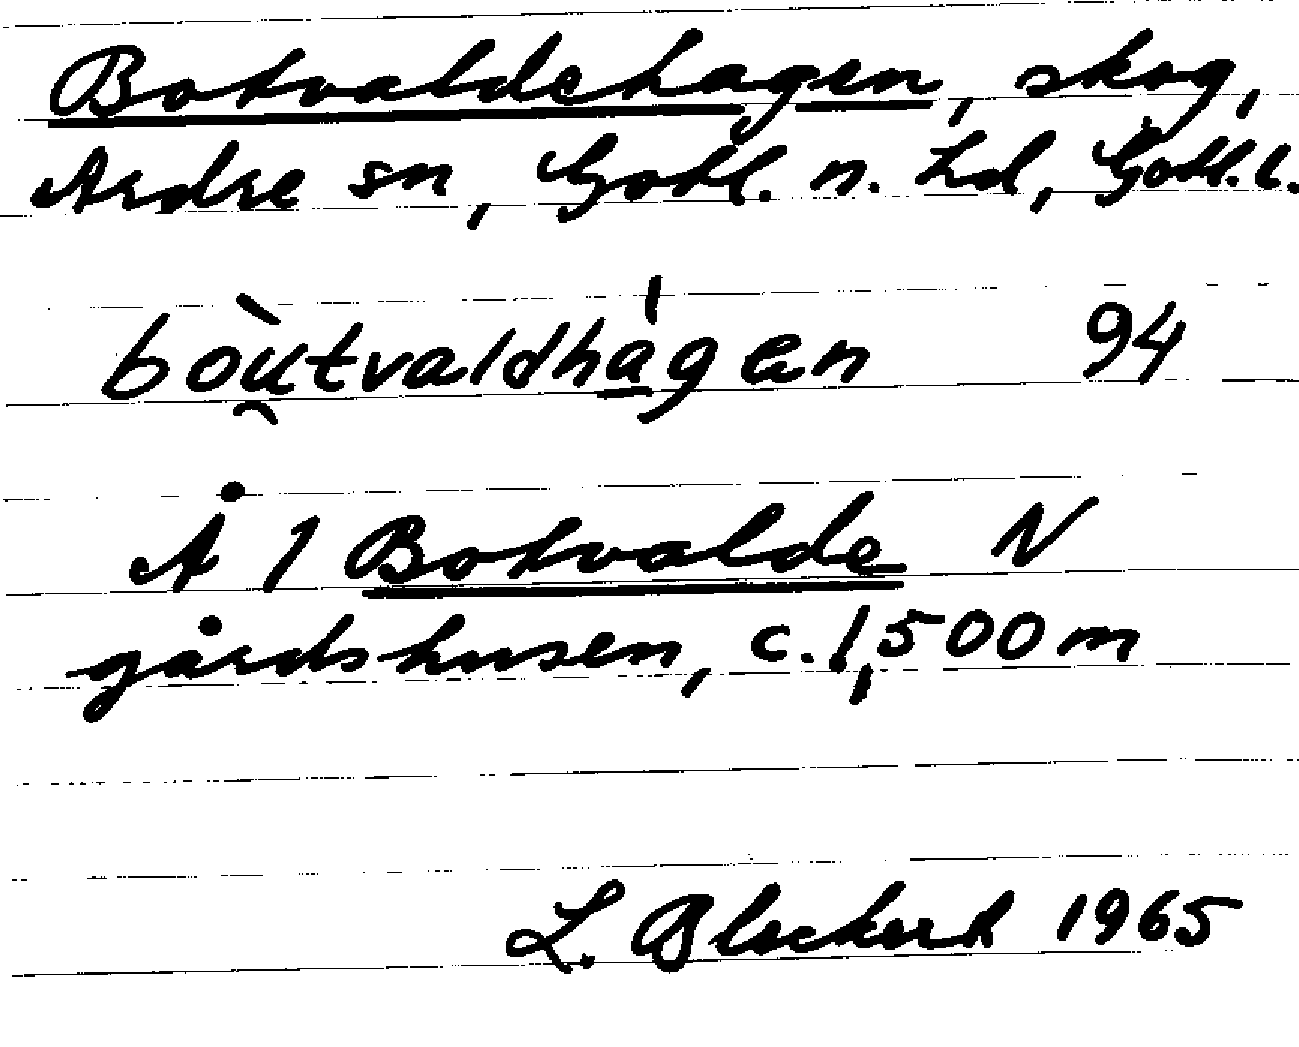 Botvaldehagen, skog,
Ardre sn, Gotl. n. hd, Gotl. l.
bòu̯tvaldha̍gen 94
Å 1 Botvalde N
gårdshusen, c. 1,500 m
L. Bleckerd 1965